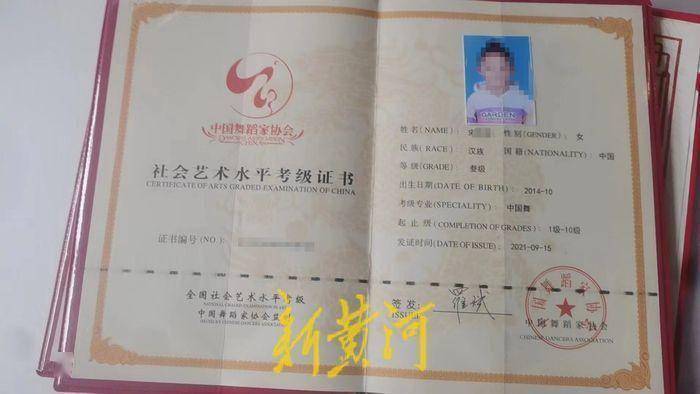 中国舞蹈家协会
DANCERS ASSOCIATION
CHINA
社会艺术水平考级证书
CERTIFICATE OF ARTS GRADED EXAMINATION OF CHINA
证书编号(NO):
全国社会艺术水平考级
NATIONAL GRADED EXAMINATION OF
中国舞蹈家协会
GARDEN
姓名(NAME): 性别(GENDER): 女
民族(RACE): 汉族 国籍(NATIONALITY): 中国
等级(GRADE): 叁级
出生日期(DATE OF BIRTH): 2014-10
考级专业(SPECIALITY): 中国舞
起止级(COMPLETION OF GRADES): 1级-10级
发证时间(DATE OF ISSUE): 2021-09-15
签发:
ISSUE
罗斌
中国舞蹈家协会
中国舞蹈家协会
CHINESE DANCERS ASSOCIATION
新黄河